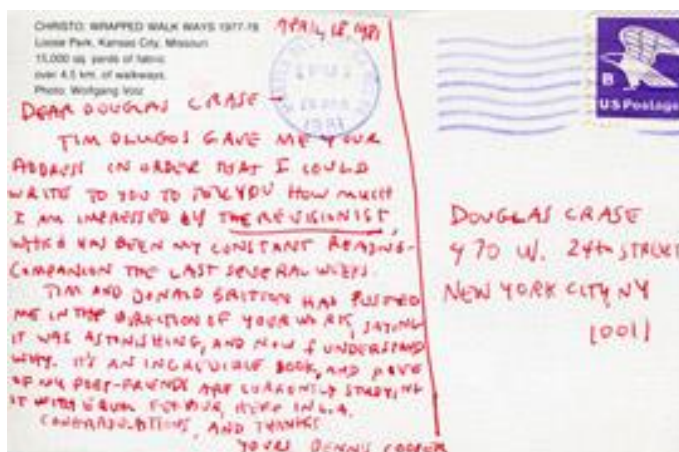 CHRISTO: WRAPPED WALK WAYS 1977-78
Loose Park, Kansas City, Missouri
15,000 sq. yards of fabric
over 4.5 km. of walkways.
Photo: Wolfgang Volz
APRIL 18, 1981
DEAR DOUGLAS CRASE —
TIM DLUGOS GAVE ME YOUR
ADDRESS IN ORDER THAT I COULD
WRITE TO YOU TO TELL YOU HOW MUCH
I AM IMPRESSED BY THE REVISIONIST,
WHICH HAS BEEN MY CONSTANT READING-
COMPANION THE LAST SEVERAL WEEKS.
TIM AND DONALD BRITTON HAD PUSHED
ME IN THE DIRECTION OF YOUR WORK, SAYING
IT WAS ASTINISHING, AND NOW I UNDERSTAND
WHY. IT'S AN INCREDIBLE BOOK, AND
OF MY POET-FRIENDS ARE CURRENTLY STUDYING
IT WITH EQUAL HERE IN L.A.
CONGRADULATIONS, AND THANKS
YOURS DENNIS COOPER
B
US Postage
DOUGLAS CRASE
470 W. 24th STREET
NEW YORK CITY NY
10011